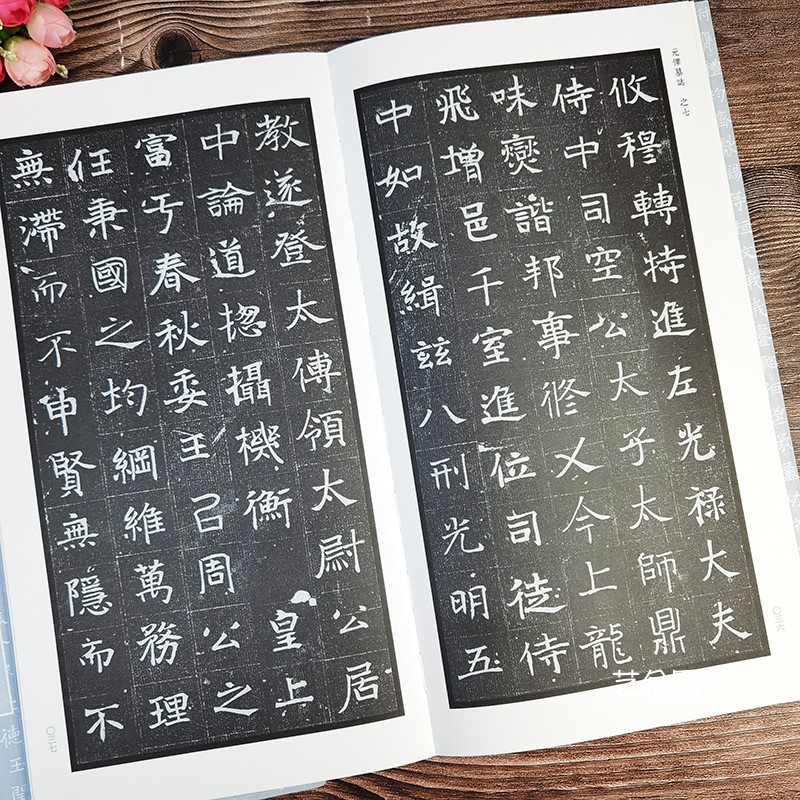 元懌墓誌 之七
攸穆轉特進左光祿大夫
侍中司空公太子太師鼎
味燮諧邦事修乂今上龍
飛增邑千室進位司徒侍
中如故緝茲八刑光明五
〇三六
教遂登太傅領太尉公居
中論道揔攝機衡 皇上
富于春秋委王㠯周公之
任秉國之均綱維萬務理
無滯而不申賢無隱而不
〇三七